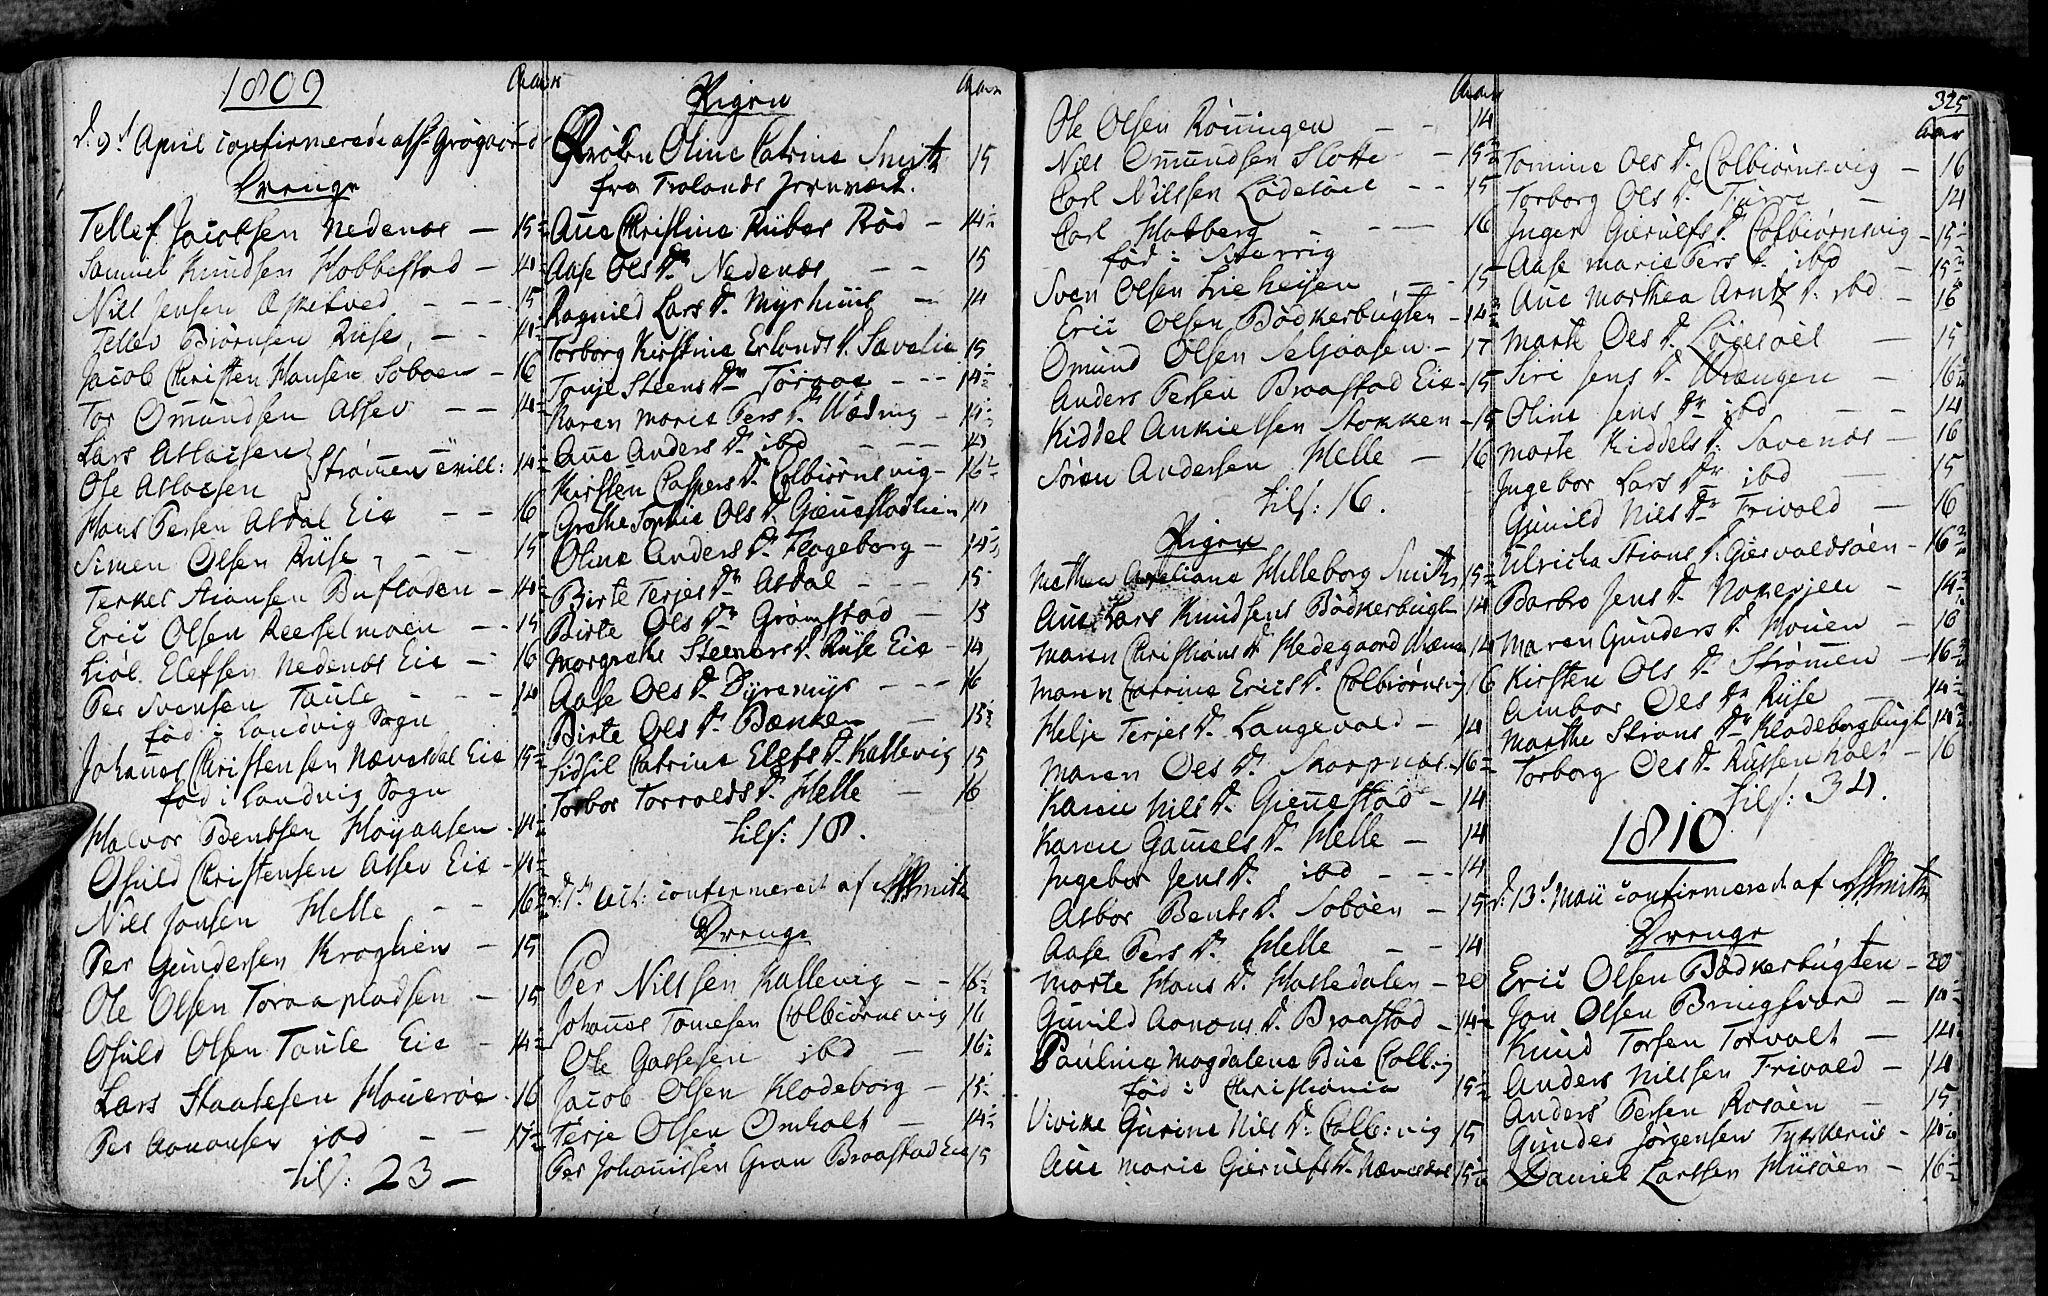 1809
Aar
d. 9d. April confirmerede af Hr Grögaard
Drenge
Tellef Jacobsen Nedenæs — 15
Samuel Knudsen Hobbestad — 14
Nils Jensen Asketved — 15
Tellev Biörnsen Rüse — 14
Jacob Christen Hansen Söboen — 16
Tor Omundsen Assev — 14
Lars Atlacsen
Ole Atlacsen } Strömen 14
Hans Persen Asdal Eie — 16
Simen Olsen Rüse — 15
Terkel Stiansen Bufladen — 14
Eric Olsen Reeselmoen — 15
Liöl Elefsen Nedenæs Eie — 16
Per Svensen Taule — 14
föd i Landvig Sogn
Johanes Christensen Nævesdal Eie 15
föd i Landvig Sogn
Halvor Bentsen Höyaasen — 14
Osuld Christensen Assev Eie — 14
Nils Jonsen Helle — 16
Per Gundersen Kroglien — 15
Ole Olsen Toraapladsen — 15
Osuld Olsen Taule Eie — 14
Lars Staalesen Haveröe — 16
Per Aanonsen ibd — 17
tils: 23 —
Pigen
Aar
Fröken Oline Catrine Smith 15
fra Frolands Jernværk.
Ane Christine Rüber Röd — 14
Aase Ols Dr. Nedenæs — 15
Ragnild Lars D. Myrhuus — 14
Torborg Kirstine Erlands D. Savelie 15
Tonje Steens Dr. Toraas — 14
Karen Marie Pers Dr. Wæding — 14
Ane Anders Dr. ibd — 15
Kirsten Caspers Dr. Colbiörnsvig — 16
Grethe Sophie Ols D. Gienestadlien 14
Oline Anders D. Flageborg — 14
Birte Terjes Dr. Asdal — 15
Birte Ols Dr. Gromstad — 15
Margrethe Steenars D. Rüse Eie — 14
Aase Ols D. Dyremyr — 16
Birte Ols Dr. Bænken — 15
Sidsil Catrine Elefs D. Kallevig 15
Torbor Torvalds D. Helle — 16
tils: 18.
d. 1st Oct: confirmeret af Smith
Drenge
Per Nilssen Kallevig — 16
Johanes Tomesen Colbiörnsvig 16
Ole Gassesen ibd — 16
Jacob Olsen Klodeborg — 15
Terje Olsen Omholt — 14
Per Johannissen Gran Braastad Eie 15
Aar
Ole Olsen Röningen — 14
Nils Omundsen Slotte — 15
Carl Nilssen Lödesöel — 15
Carl Hatberg — 16
föd i Sverrig
Sven Olsen Lieheisen — 15
Eric Olsen Bödkerbugten — 14
Omund Olsen Seljaasen — 17
Anders Persen Braastad Eie — 15
Kiddel Ankielsen Stokken — 15
Sören Andersen Helle — 16
tils: 16.
Pigen
Methea Aureliana Helleborg Smith 15
Ane Lars Knudsens Bödkerbugt 14
Maren Christians D. Hedegaard 14
Maren Catrine Erics D. Colbiörnsvig 16
Helje Terjes D. Langevold — 14
Maren Oles D. Skarpnæs — 16
Karen Nils D. Gienestad — 14
Karen Gamels D. Helle — 14
Ingebor Jens D. ibd — 14
Asbor Bents D. Soböen — 15
Aase Pers D. Helle — 14
Marte Hans D. Hassedalen — 20
Gunild Aanons D. Braastad — 14
Pauline Magdalene Bue Colb:vig
föd i Christiania 15
Vivike Gurine Nils D. Colb:vig 15
Ane Marie Gierulfs D. Nævesdal 15
325
Aar
Tomine Oles D. Colbiörnsvig — 16
Torborg Ols D. — 14
Inger Gierulfs D. Colbiörnsvig — 15
Aase Marie Pers D. ibd — 15
Ane Marthea Arnts D. ibd — 16
Marte Oles D. Lödesöel — 15
Siri Jens D. Wrængen — 16
Oline Jens Dr. ibd — 14
Marte Kiddels D. Savenæs — 16
Ingebor Lars Dr. ibd — 15
Gunild Nils Dr. Trivold — 16
Ulricka Stians D. Giervaldsöen — 16
Barbro Jens D. Nakerjeen — 14
Maren Gunders D. Houen — 16
Kirsten Ols D. Strömen — 16
Ambor Oles Dr. Rüse — 14
Marthe Stians Dr. Klodeborgbugt 14
Torborg Oles D. Russenholt — 16
tils: 34.
1810
d. 13d. Maii confirmerede af Smith
Drenge
Eric Olsen Bödkerbugten — 20
Jon Olsen Bringsvard — 14
Knud Torsen Torvolt — 14
Anders Nilssen Trivold — 14
Anders Persen Rosöen — 15
Gunder Jörgensen — 14
Daniel Larssen Husöen — 16